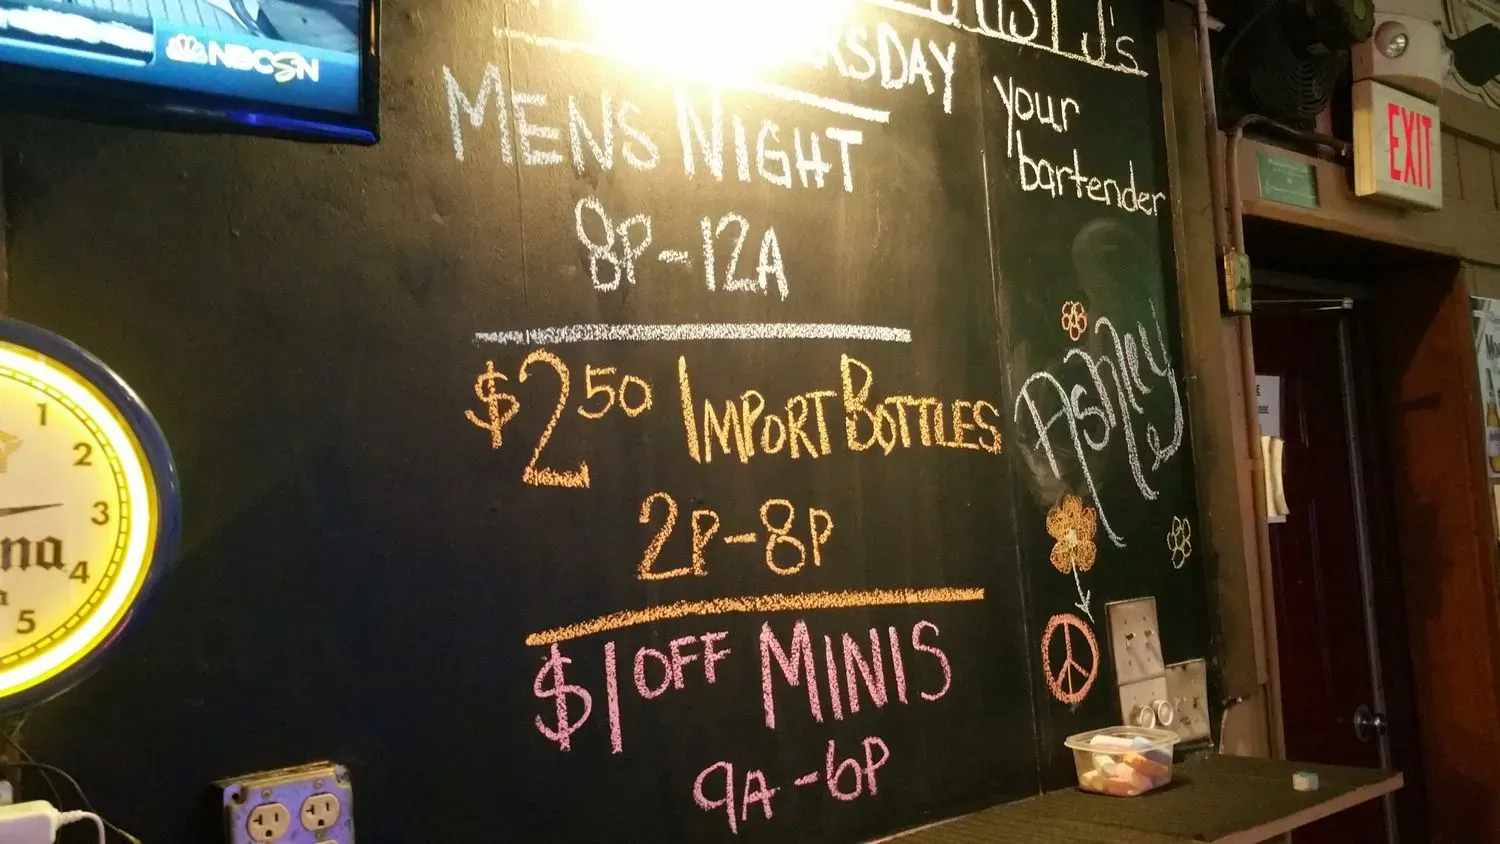 NBCSN
J's
RSDAY
MENS NIGHT
8P-12A
$2.50 IMPORT BOTTLES
2P-8P
$1 OFF MINIS
9A-6P
your
bartender
Ashley
EXIT
1
2
3
4
5
na